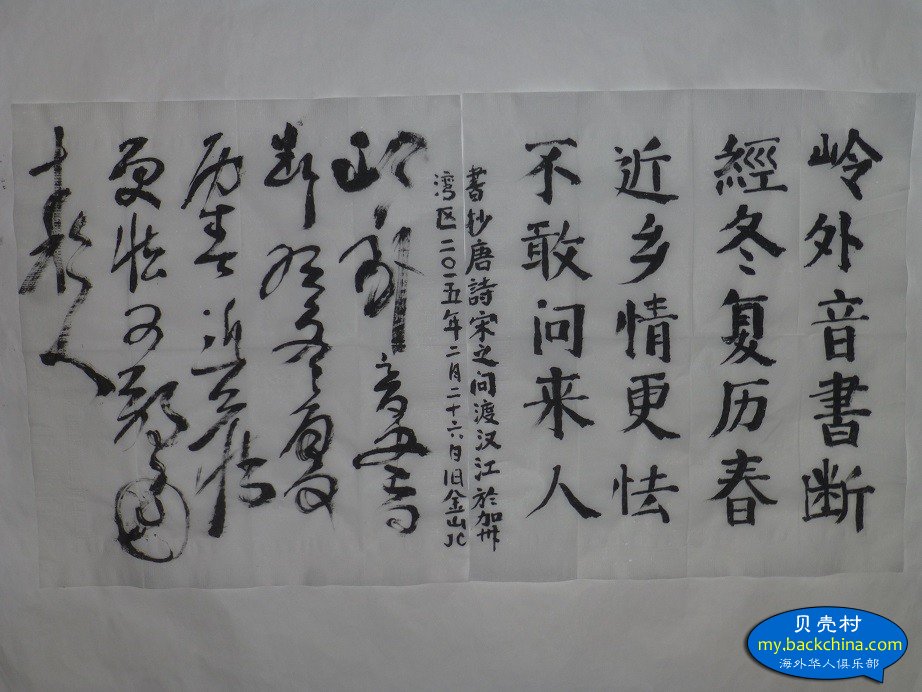 岭外音書断
經冬复历春
近乡情更怯
不敢问来人
書抄唐詩宋之问渡汉江於加州
湾区二〇一五年二月二十六日旧金山JC
岭外音書
断經冬复
历春近乡情
更怯不敢问
来人
贝壳村
my.backchina.com
海外华人俱乐部